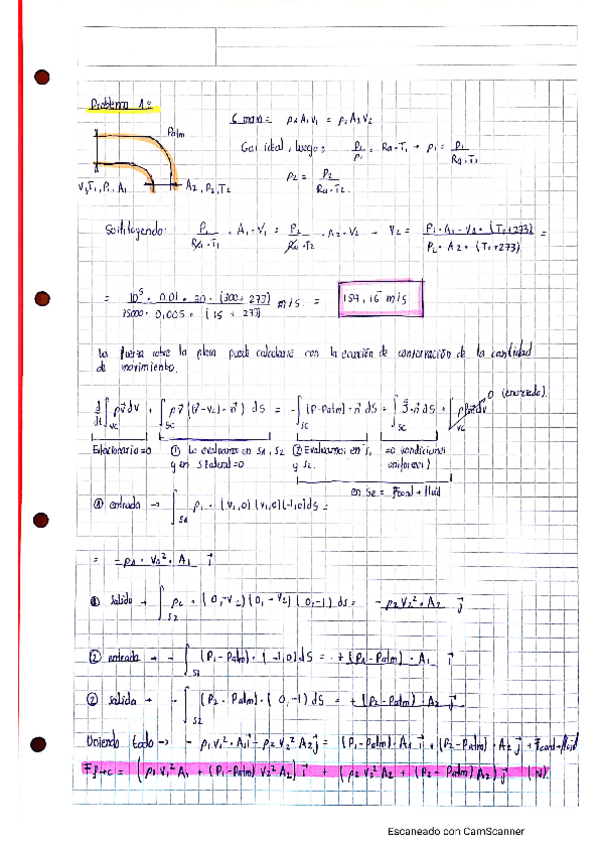 Problema 1:
C masa = ρ1 A1 V1 = ρ2 A2 V2
Patm
Gas ideal, luego: P2/ρ2 = Ra·T1 → ρ1 = P1/Ra·T1
V1, T1, P1, A1
A2, P2, T2
ρ2 = P2/Ra·T2
Sustituyendo: P1/Ra·T1 · A1 · V1 = P2/Ra·T2 · A2 · V2 → V2 = P1 · A1 · V1 · (T2+273) / P2 · A2 · (T1+273) =
m/s = 154,16 m/s
La fuerza sobre la placa puede calcularse con la ecuación de conservación de la cantidad
de movimiento.
d/dt ∫vc ρv⃗ dv + ∫sc ρv⃗ [(v⃗-vc)·n⃗] dS = -∫sc (P-Patm)·n⃗ dS + ∫sc · n⃗ dS + ∫vc 0 (enunciado).
Estacionario=0
① Lo evaluamos en S1, S2
y en S lateral=0
② Evaluamos en S1
y S2.
=0 (condiciones
uniformes)
en Sc = Fcond→fluid
① entrada → ∫S1 ρ1 · (V1,0)(V1,0)(-1,0) dS =
= -ρ1 · V1² · A1 i⃗
① Salida → ∫S2 ρ2 · (0,-V2)(0,-V2)(0,-1) dS = -ρ2 V2² · A2 j⃗
② entrada → -∫S1 (P1-Patm) · (-1,0) dS = +(P1-Patm) · A1 i⃗
② salida → -∫S2 (P2-Patm) · (0,-1) dS = +(P2-Patm) · A2 j⃗
Uniendo todo → -ρ1V1²·A1 i⃗ - ρ2V2²A2 j⃗ = (P1-Patm)·A1 i⃗ + (P2-Patm)·A2 j⃗ + Fcond→fluid
F f→c = (ρ1V1²A1 + (P1-Patm) V2²A2) i⃗ + (ρ2V2²A2 + (P2-Patm)A2) j⃗ (N).
Escaneado con CamScanner